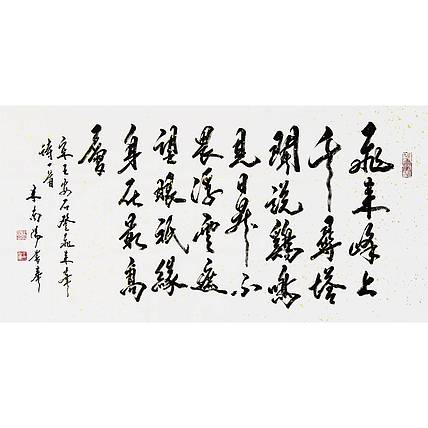 飛来峰上
千尋塔
聞説鷄鳴
見日昇不
畏浮雲遮
望眼祇緣
身在最高
層
宋王安石登飛来峰
詩一首